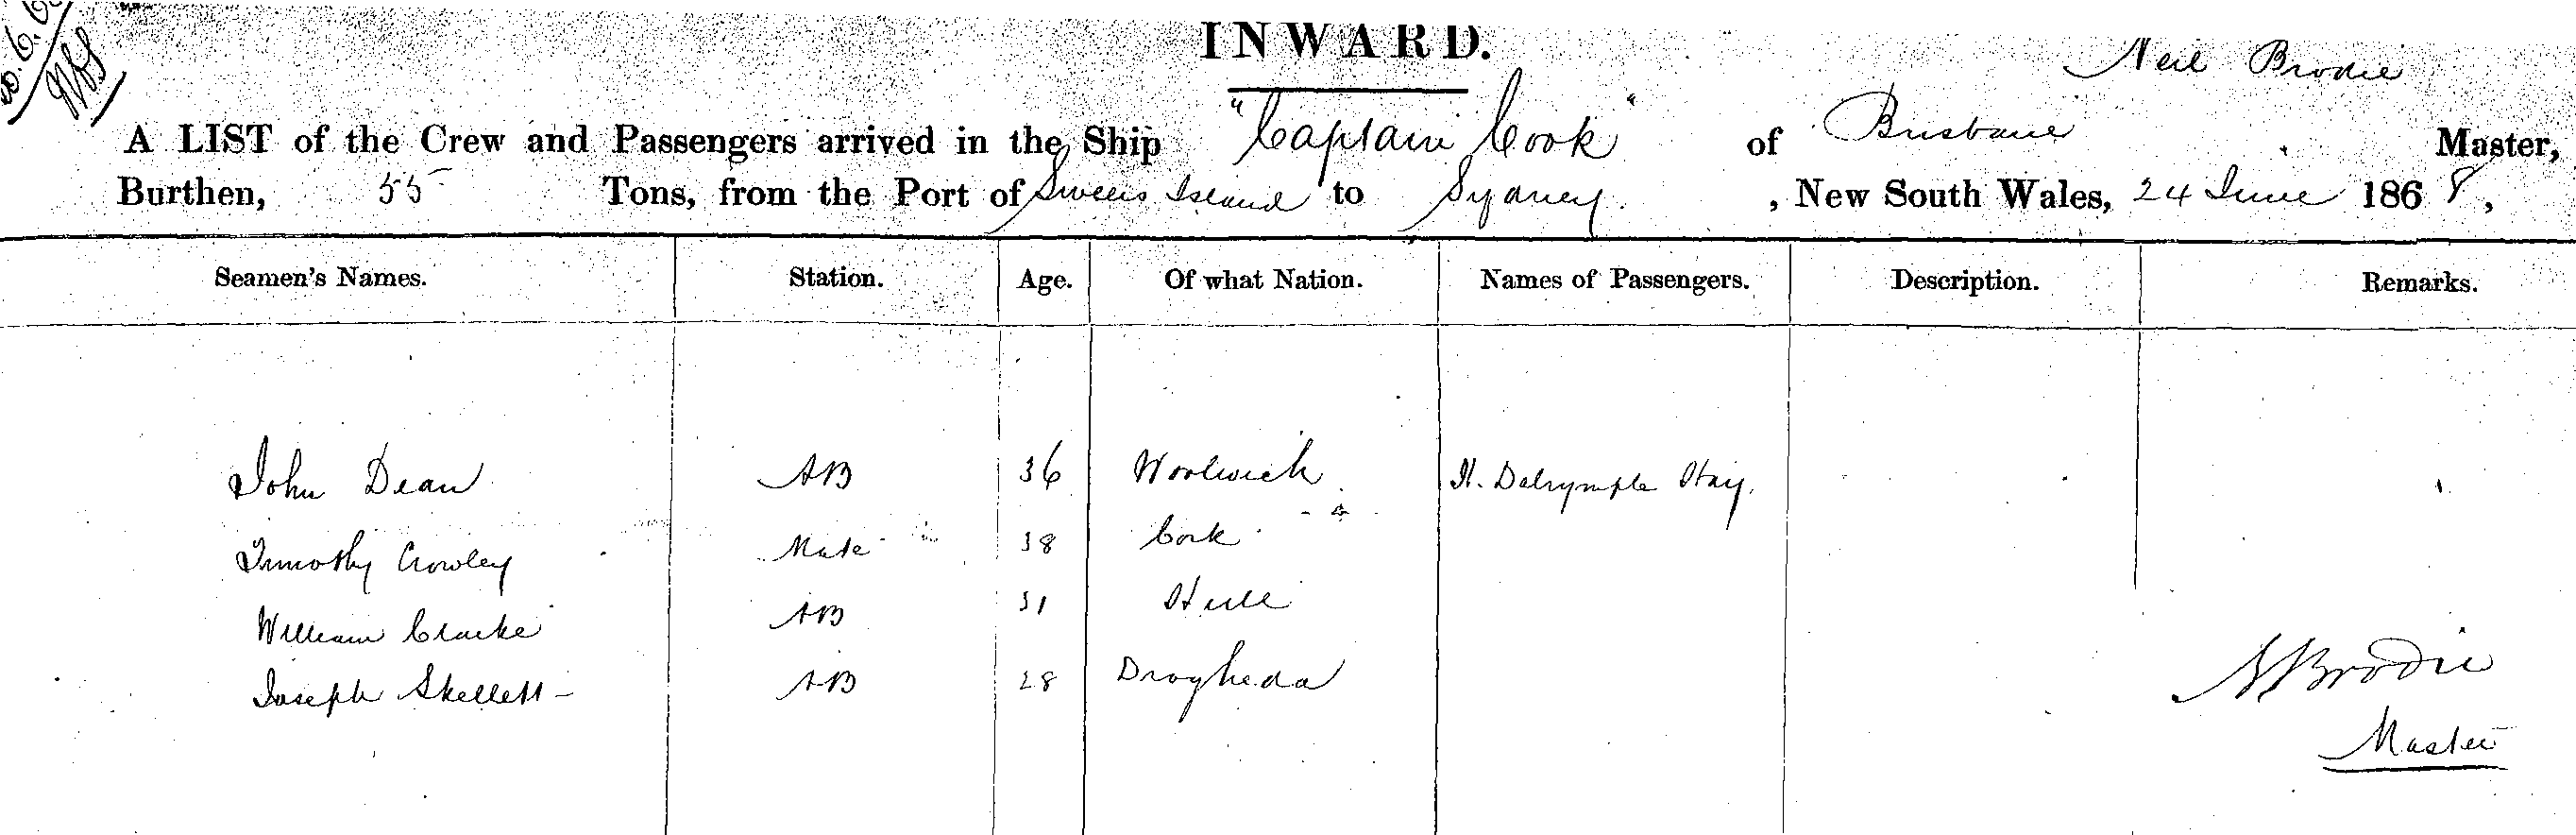 INWARD.
Neil Brodie
A LIST of the Crew and Passengers arrived in the Ship "Captain Cook" of Brisbane Master,
Burthen, 55 Tons, from the Port of Sweers Island to Sydney. , New South Wales, 24 June 1868,
Seamen's Names. Station. Age. Of what Nation. Names of Passengers. Description. Remarks.
John Dean AB 36 Woolwich H. Dalrymple Hay.
Timothy Crowley Mate 38 Cork
William Clarke AB 31 Hull
Joseph Skellett AB 28 Drogheda
N Brodie
Master